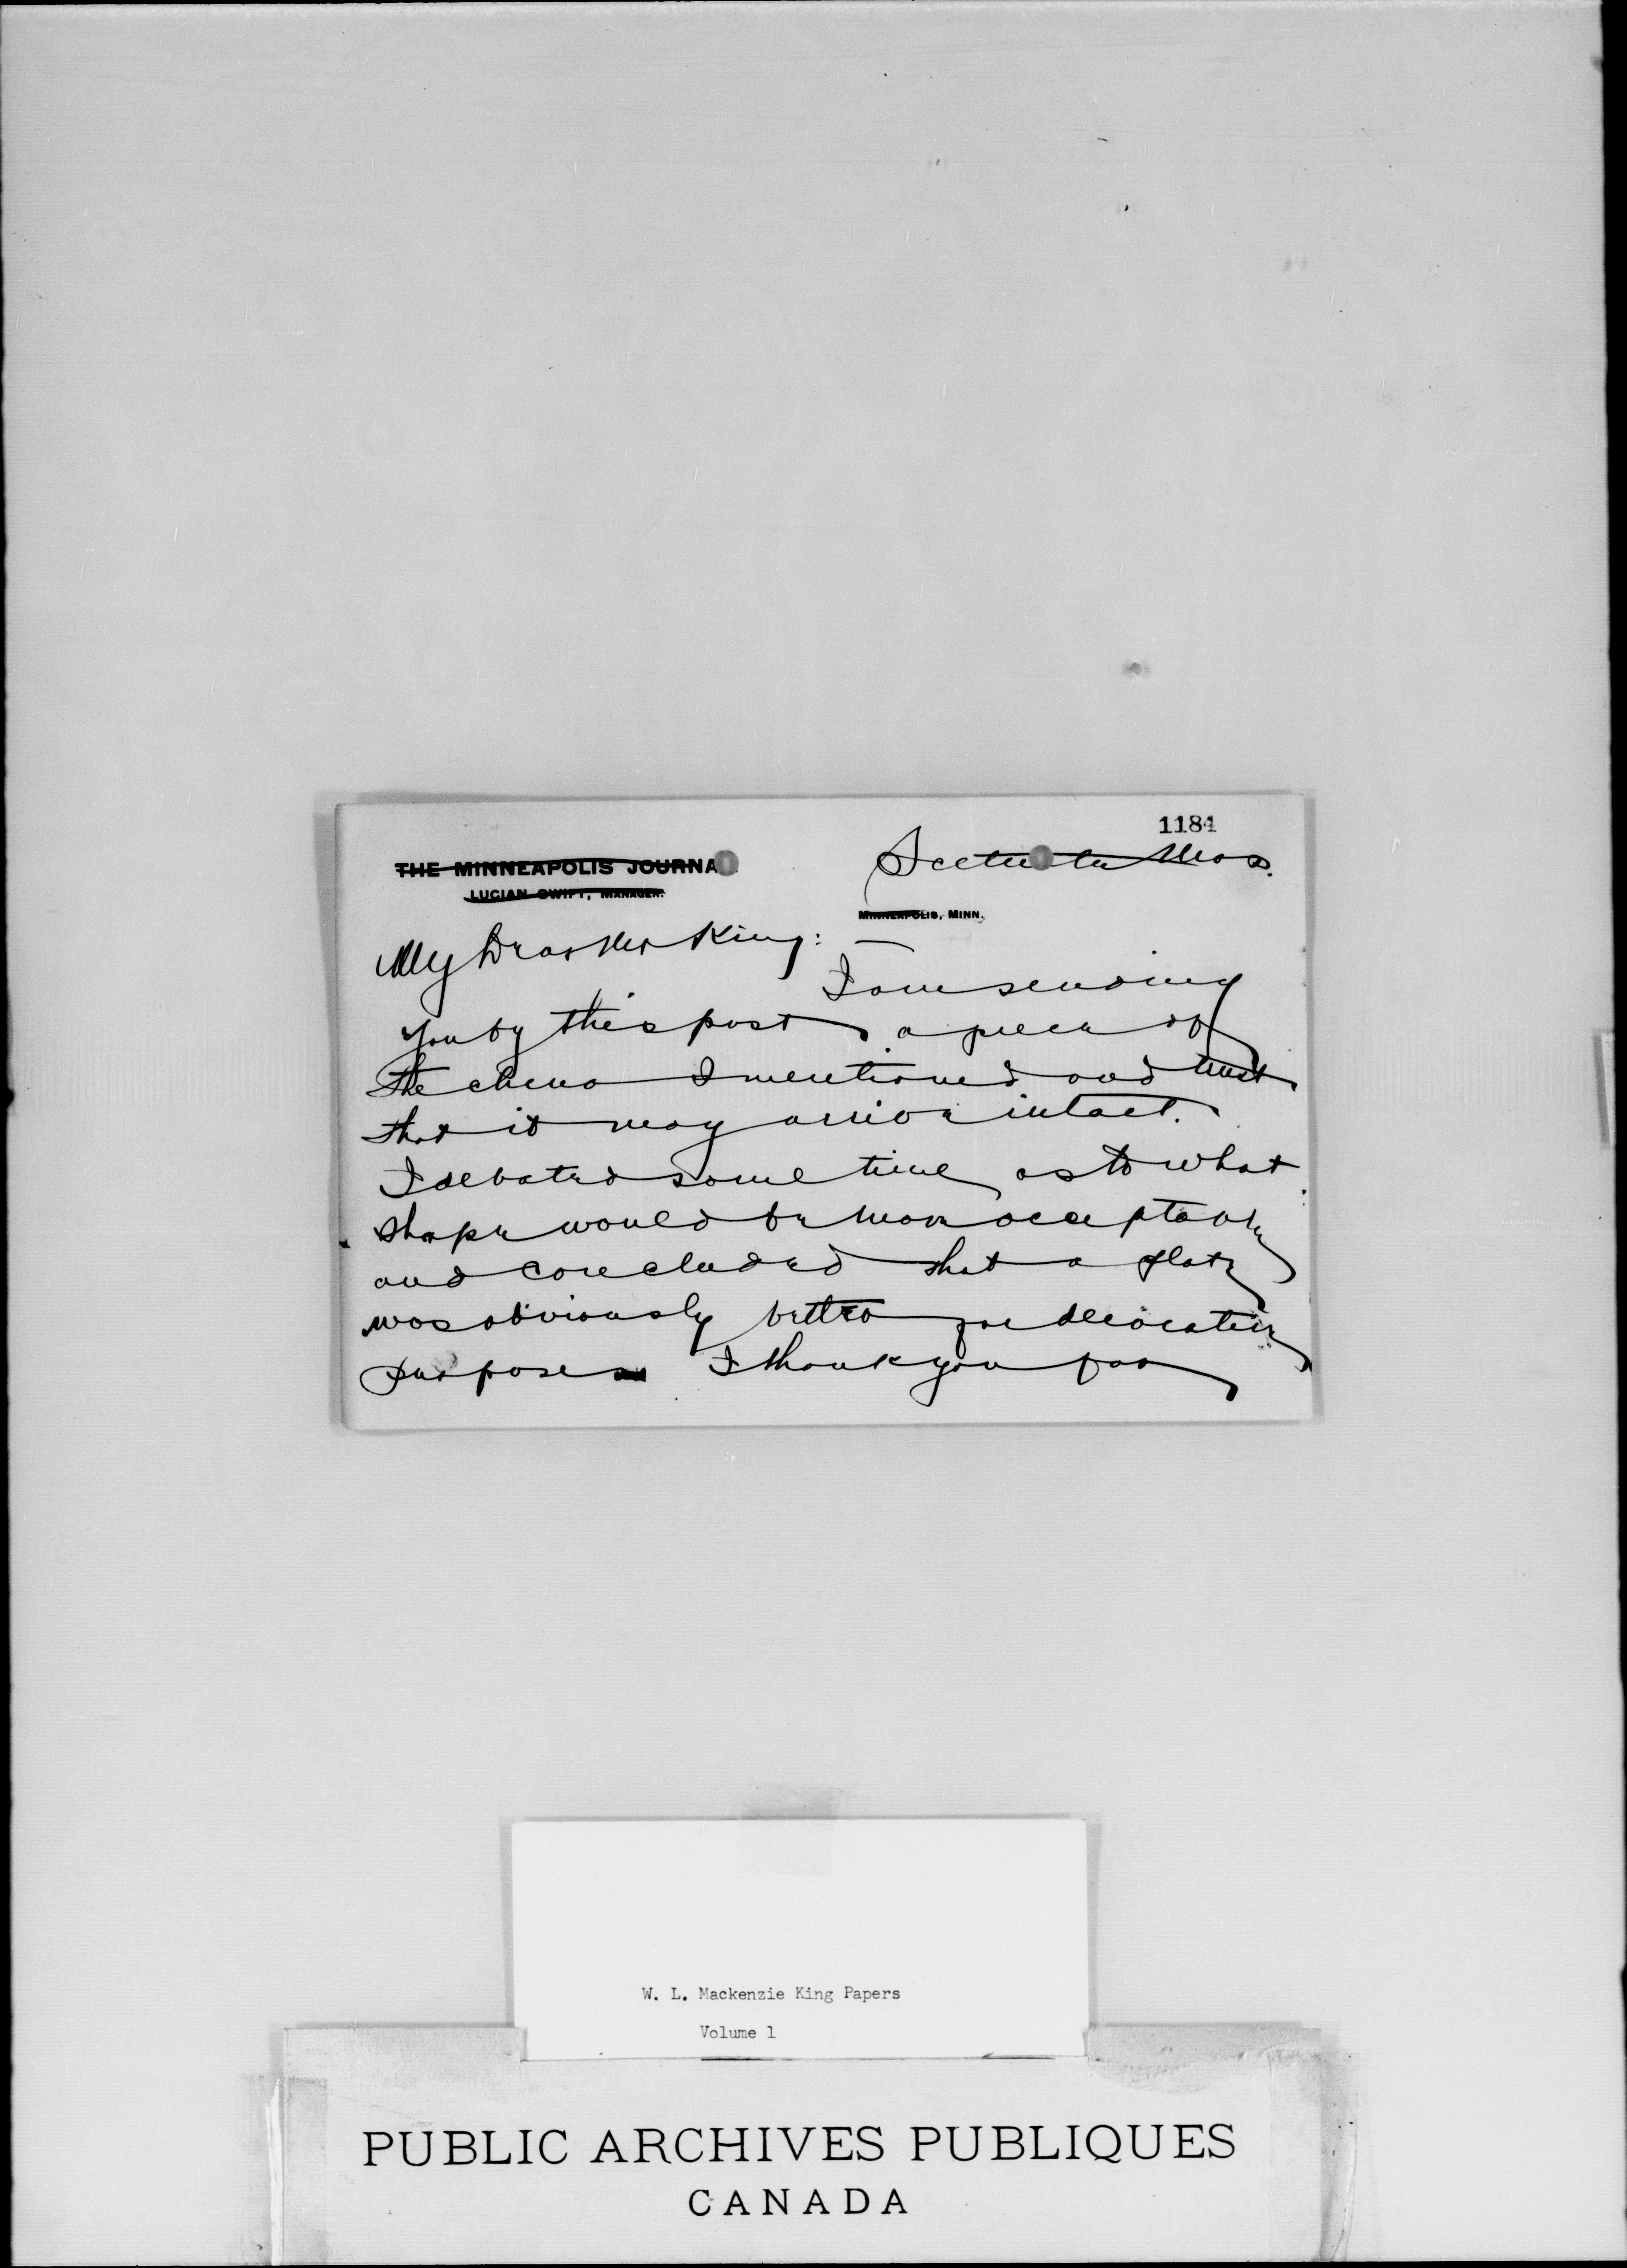 1184
THE MINNEAPOLIS JOURNA
LUCIAN SWIFT, MANAGER.
Scituate Mass.
MINNEAPOLIS, MINN.
My Dear Mr King: —
I am sending
you by this post, a piece of
the china I mentioned and trust
that it may arrive intact.
I debated some time, as to what
shape would be more acceptable
and concluded that a plate
was obviously better for decorative
purposes I thank you for
W. L. Mackenzie King Papers
Volume 1
PUBLIC ARCHIVES PUBLIQUES
CANADA